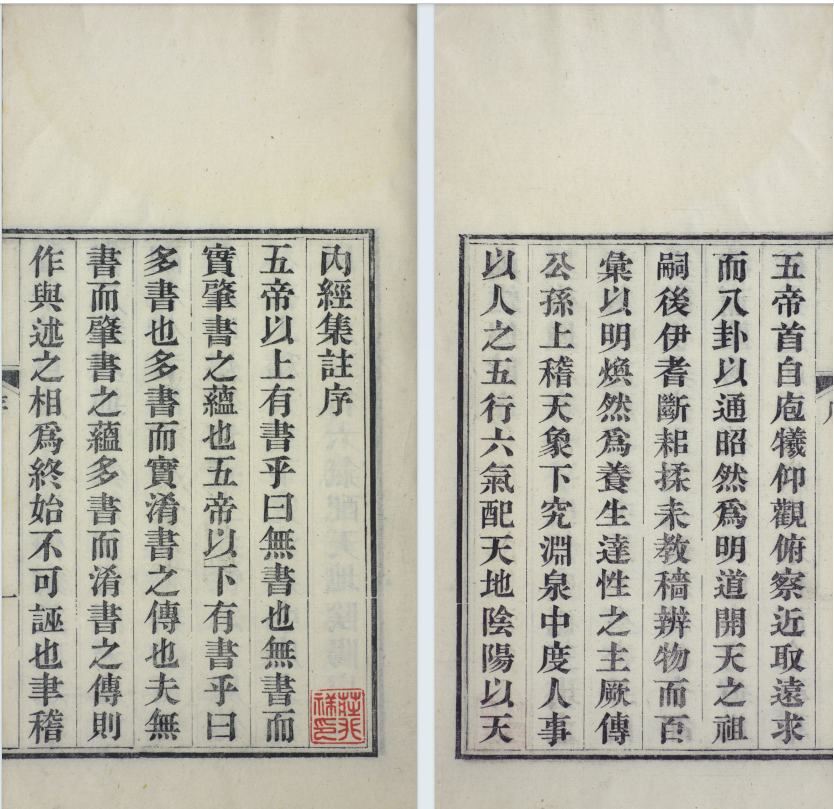 內經集註序
五帝以上有書乎曰無書也無書而
實肇書之蘊也五帝以下有書乎曰
多書也多書而實淆書之傳也夫無
書而肇書之蘊多書而淆書之傳則
作與述之相爲終始不可誣也聿稽
莊兆祥印
五帝首自庖犧仰觀俯察近取遠求
而八卦以通昭然爲明道開天之祖
嗣後伊耆斷耜揉耒教穡辨物而百
彙以明煥然爲養生達性之主厥傳
公孫上稽天象下究淵泉中度人事
以人之五行六氣配天地陰陽以天